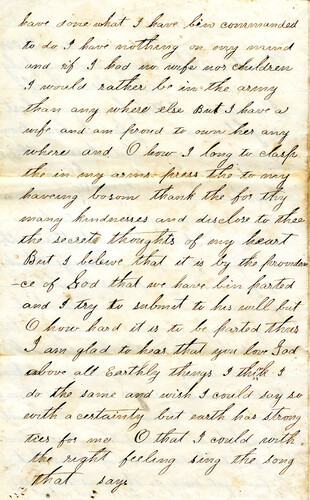 have done what I have bin commanded
to do I have nothing on my mind
and if I had no wife nor children
I would rather be in the army
than any where else But I have a
wife and am proud to own her any
where and O how I long to clasp
the in my arms press the to my
heaveing bosom thank the for thy
many kindnesses and disclose to thee
the secrets thoughts of my heart
But I believe that it is by the providen
-ce of God that we have bin parted
and I try to submit to his will but
O how hard it is to be parted thus
I am glad to hear that you love God
above all Earthly things I think I
do the same and wish I could say so
with a certainty but earth has strong
ties for me O that I could with
the right feeling sing the song
that says